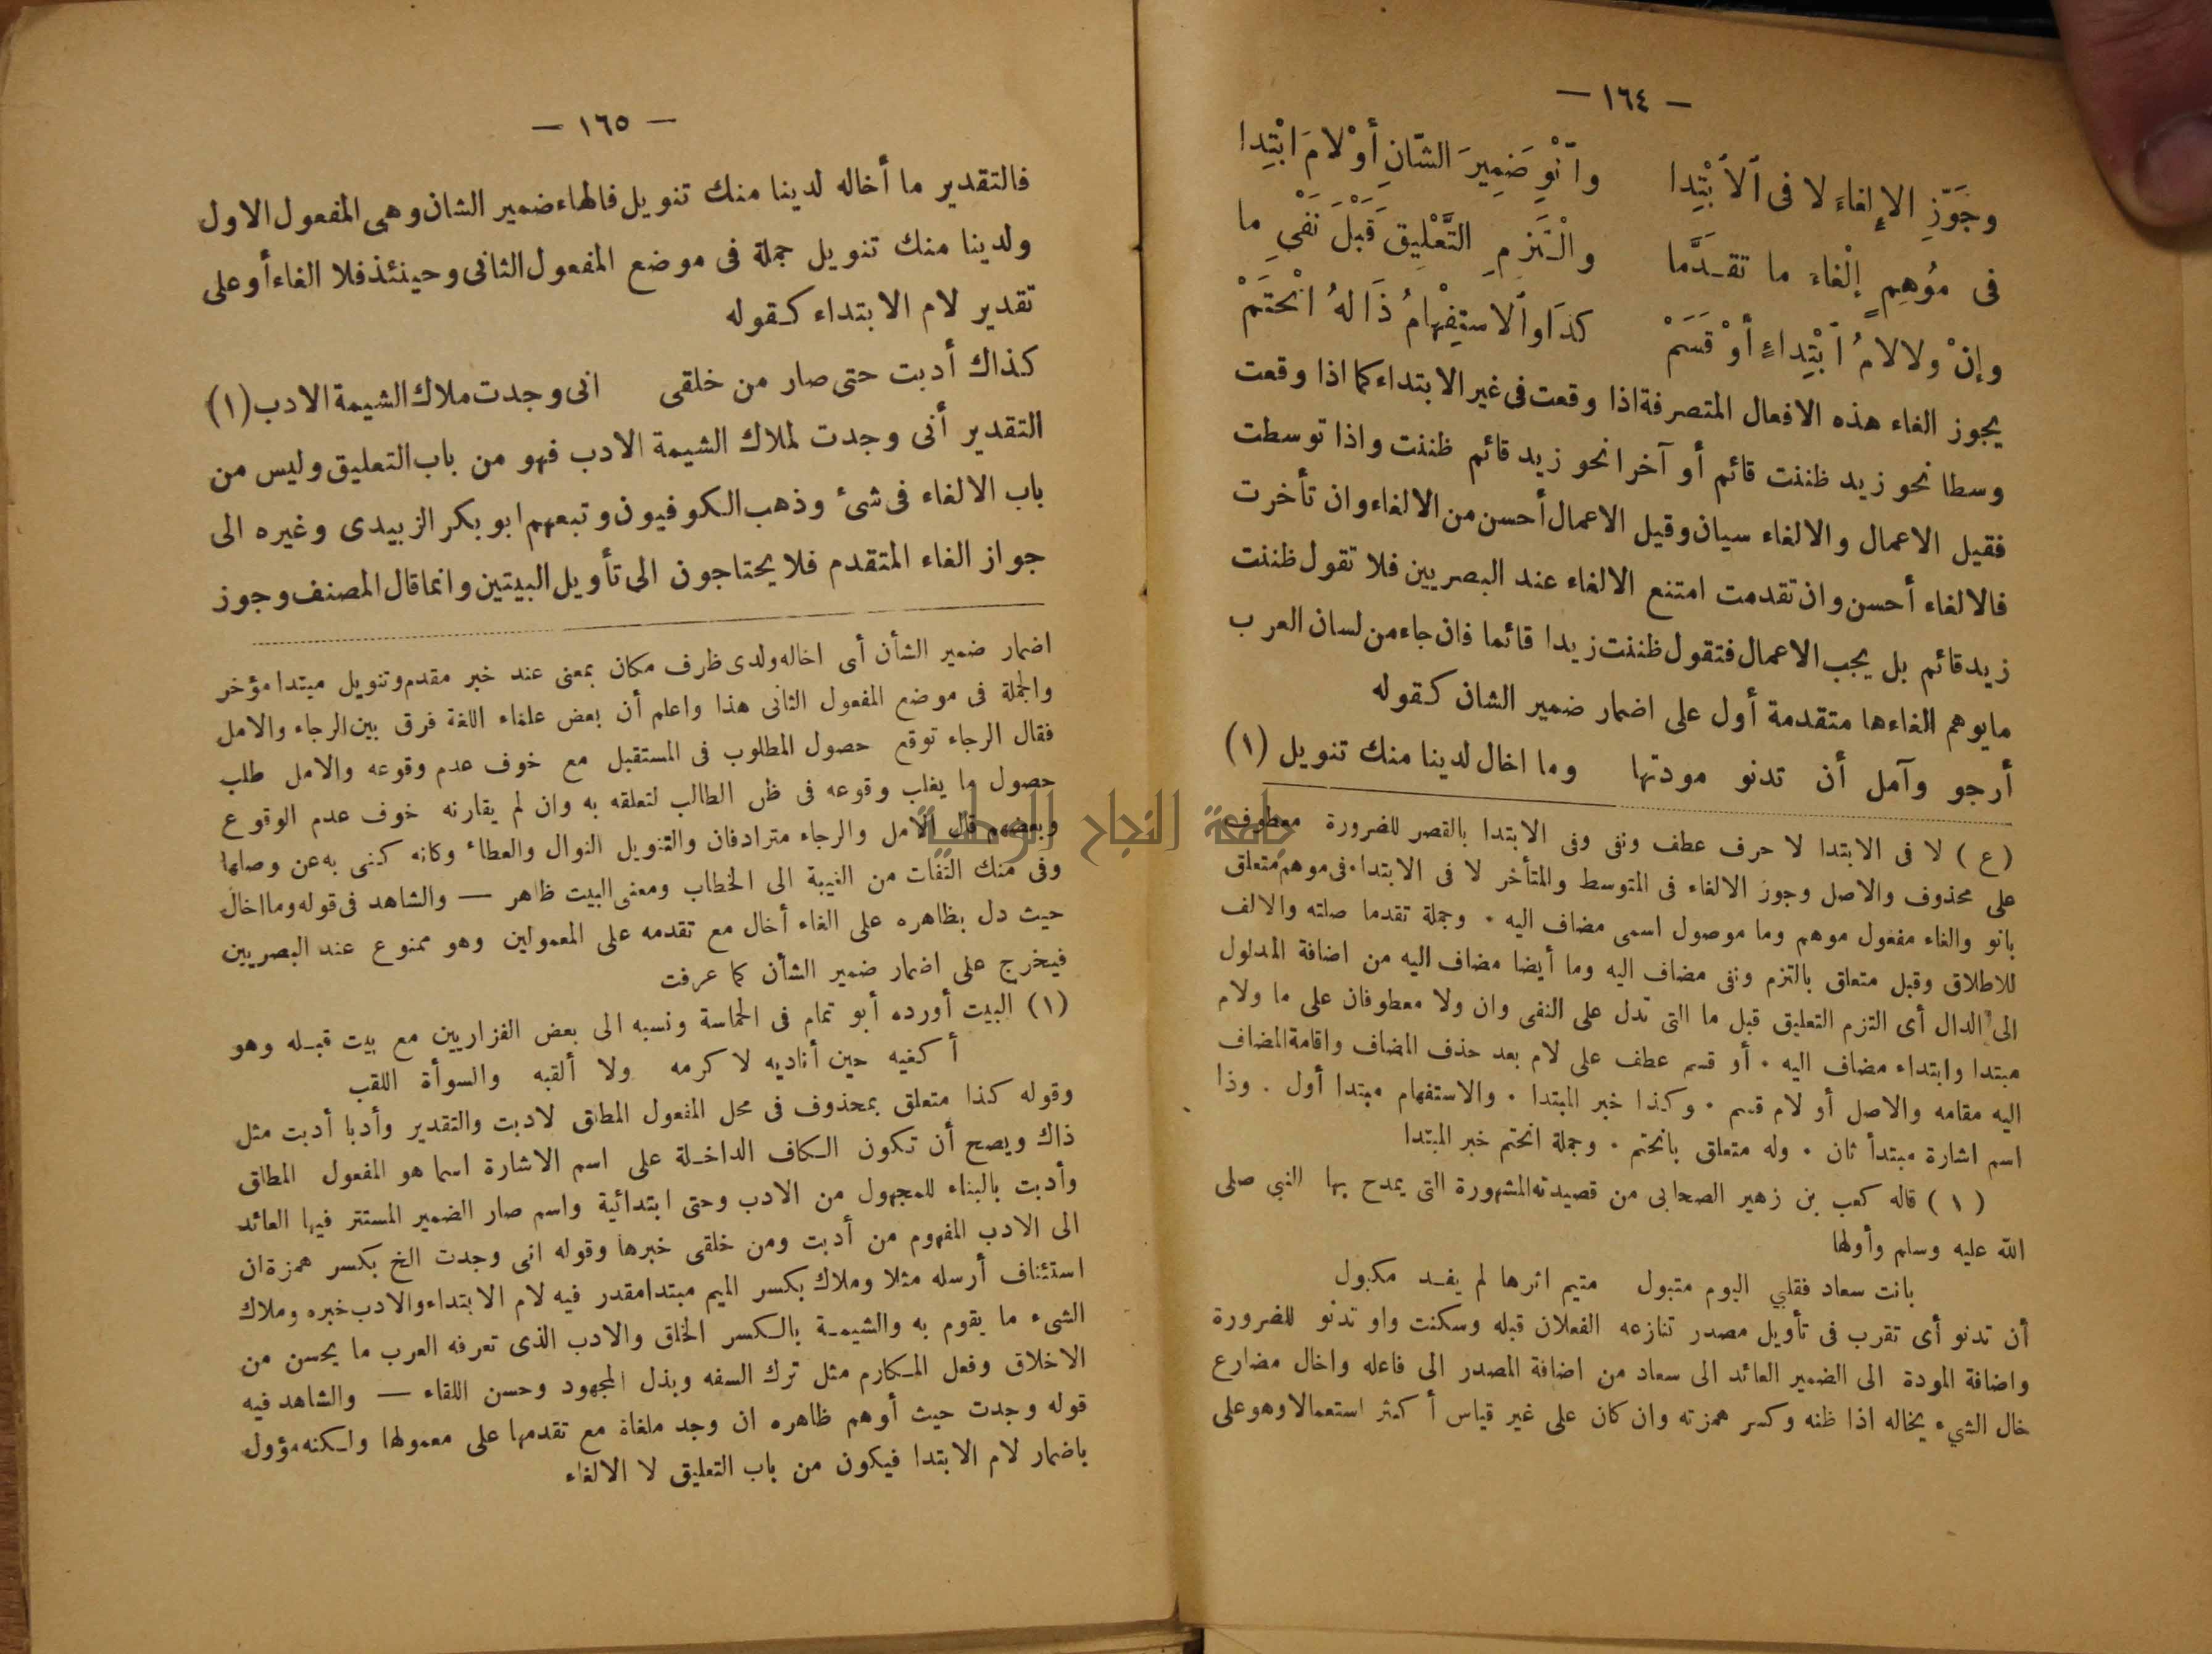 — ١٦٤ —
وجَوِّزِ الإِلغاءَ لا فى ٱلاَبْتِدا وٱنْوِ ضَمِيرَ الشّانِ أَوْ لامَ ابْتِدا
فى مُوْهِمٍ إِلْغاءَ ما تقـدَّما والْتَزِمِ التَّعْلِيقَ قَبْلَ نَفْىِ ما
وإِنْ ولا لامُ ٱبْتِداءٍ أَوْ قَسَمْ كذَا وٱلاستِفْهامُ ذَا لهُ انْحَتَمْ
يجوز الغاء هذه الافعال المتصرفة اذا وقعت فى غير الابتداء كما اذا وقعت
وسطا نحو زيد ظننت قائم أو آخرا نحو زيد قائم ظننت واذا توسطت
فقيل الاعمال والالغاء سيان وقيل الاعمال أحسن من الالغاء وان تأخرت
فالالغاء أحسن وان تقدمت امتنع الالغاء عند البصريين فلا تقول ظننت
زيد قائم بل يجب الاعمال فتقول ظننت زيدا قائما فان جاء من لسان العرب
مايوهم الغاءها متقدمة أول على اضمار ضمير الشان كـقوله
أرجو وآمل أن تدنو مودتها وما اخال لدينا منك تنويل (١)
(ع) لا فى الابتدا لا حرف عطف ونفى وفى الابتدا بالقصر للضرورة معطوف
على محذوف والاصل وجوز الالغاء فى المتوسط والمتأخر لا فى الابتداء فى موهم متعلق
بانو والغاء مفعول موهم وما موصول اسمى مضاف اليه . وجملة تقدما صلته والالف
للاطلاق وقبل متعلق بالتزم ونفى مضاف اليه وما أيضا مضاف اليه من اضافة المدلول
الى الدال أى التزم التعليق قبل ما التى تدل على النفى وان ولا معطوفان على ما ولام
مبتدا وابتداء مضاف اليه . أو قسم عطف على لام بعد حذف المضاف واقامة المضاف
اليه مقامه والاصل أو لام قسم . وكذا خبر المبتدا . والاستفهام مبتدا أول . وذا
اسم اشارة مبتدأ ثان . وله متعلق بانحتم . وجملة انحتم خبر المبتدا
(١) قاله كعب بن زهير الصحابى من قصيدته المشهورة التى يمدح بها النبي صلى
الله عليه وسلم وأولها
بانت سعاد فقلبي اليوم متبول متيم اثرها لم يفـد مكبول
أن تدنو أى تقرب فى تأويل مصدر تنازعه الفعلان قبله وسكنت واو تدنو للضرورة
واضافة المودة الى الضمير العائد الى سعاد من اضافة المصدر الى فاعله واخال مضارع
خال الشيء يخاله اذا ظنه وكسر همزته وان كان على غير قياس أكثر استعمالا وهو على
— ١٦٥ —
فالتقدير ما أخاله لدينا منك تنويل فالهاء ضمير الشان وهى المفعول الاول
ولدينا منك تنويل جملة فى موضع المفعول الثانى وحينئذ فلا الغاء أو على
تقدير لام الابتداء كـقوله
كذاك أدبت حتى صار من خلقى انى وجدت ملاك الشيمة الادب (١)
التقدير أنى وجدت لملاك الشيمة الادب فهو من باب التعليق وليس من
باب الالغاء فى شئ وذهب الكوفيون وتبعهم ابو بكر الزبيدى وغيره الى
جواز الغاء المتقدم فلا يحتاجون الى تأويل البيتين وانما قال المصنف وجوز
اضمار ضمير الشأن أى اخاله ولدى ظرف مكان بمعنى عند خبر مقدم وتنويل مبتدا مؤخر
والجملة فى موضع المفعول الثانى هذا واعلم أن بعض علماء اللغة فرق بين الرجاء والامل
فقال الرجاء توقع حصول المطلوب فى المستقبل مع خوف عدم وقوعه والامل طلب
حصول ما يغلب وقوعه فى ظن الطالب لتعلقه به وان لم يقارنه خوف عدم الوقوع
وبعضهم قال الامل والرجاء مترادفان والتنويل النوال والعطاء وكانه كنى به عن وصلها
وفى منك التفات من الغيبة الى الخطاب ومعنى البيت ظاهر — والشاهد فى قوله وما اخال
حيث دل بظاهره على الغاء أخال مع تقدمه على المعمولين وهو ممنوع عند البصريين
فيخرج على اضمار ضمير الشأن كما عرفت
(١) البيت أورده أبو تمام فى الحماسة ونسبه الى بعض الفزاريين مع بيت قبـله وهو
أكنيه حين أناديه لاكرمه ولا ألقبه والسوأة اللقب
وقوله كذا متعلق بمحذوف فى محل المفعول المطلق لادبت والتقدير وأدبا أدبت مثل
ذاك ويصح أن تكون الكاف الداخـلة على اسم الاشارة اسما هو المفعول المطلق
وأدبت بالبناء للمجهول من الادب وحتى ابتدائية واسم صار الضمير المستتر فيها العائد
الى الادب المفهوم من أدبت ومن خلقى خبرها وقوله انى وجدت الخ بكسر همزة ان
استئناف أرسله مثلا وملاك بكسر الميم مبتدا مقدر فيه لام الابتداء والادب خبره وملاك
الشىء ما يقوم به والشيمـة بالكسر الخلق والادب الذى تعرفه العرب ما يحسن من
الاخلاق وفعل المكارم مثل ترك السفه وبذل المجهود وحسن اللقاء — والشاهد فيه
قوله وجدت حيث أوهم ظاهره ان وجد ملغاة مع تقدمها على معمولها ولكنه مؤول
باضمار لام الابتدا فيكون من باب التعليق لا الالغاء
جامعة النجاح الوطنية